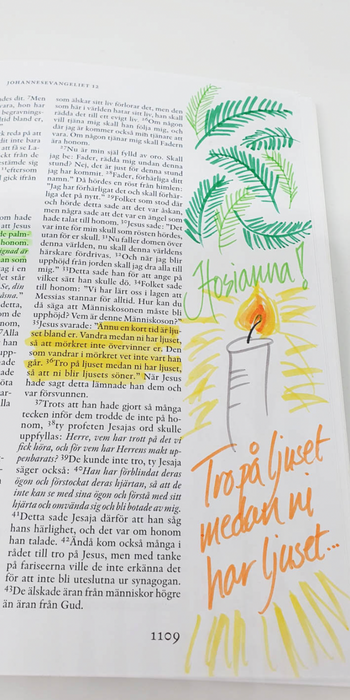 JOHANNESEVANGELIET 12
som älskar sitt liv förlorar det, men den
som här i världen hatar sitt liv, skall
vill tjäna mig skall han följa mig, och
där jag är kommer också min tjänare att
vara. Om någon tjänar mig skall Fadern
ära honom.
²⁷Nu är min själ fylld av oro. Skall
jag be: Fader, rädda mig undan denna
stund? Nej, det är just för denna stund
jag har kommit. ²⁸Fader, förhärliga ditt
namn." Då hördes en röst från himlen:
"Jag har förhärligat det och skall förhär-
liga det på nytt." ²⁹Folket som stod där
och hörde detta sade att det var åskan,
men några sade att det var en ängel som
hade talat till honom. ³⁰Jesus sade: "Det
var inte för min skull som rösten hördes,
utan för er skull. ³¹Nu faller domen över
denna världen, nu skall denna världens
härskare fördrivas. ³²Och när jag blir
upphöjd från jorden skall jag dra alla till
mig." ³³Detta sade han för att ange på
vilket sätt han skulle dö. ³⁴Folket sade
till honom: "Vi har lärt oss i lagen att
Messias stannar för alltid. Hur kan du
då säga att Människosonen måste bli
upphöjd? Vem är denne Människoson?"
³⁵Jesus svarade: "Ännu en kort tid är lju-
set bland er. Vandra medan ni har ljuset,
så att mörkret inte övervinner er. Den
som vandrar i mörkret vet inte vart han
går. ³⁶Tro på ljuset medan ni har ljuset,
så att ni blir ljusets söner." När Jesus
hade sagt detta lämnade han dem och
var försvunnen.
³⁷Trots att han hade gjort så många
tecken inför dem trodde de inte på ho-
nom, ³⁸ty profeten Jesajas ord skulle
uppfyllas: Herre, vem har trott på det vi
fick höra, och för vem har Herrens makt up-
penbarats? ³⁹De kunde inte tro, ty Jesaja
säger också: ⁴⁰Han har förblindat deras
ögon och förstockat deras hjärtan, så att de
inte kan se med sina ögon och förstå med sitt
hjärta och omvända sig och bli botade av mig.
⁴¹Detta sade Jesaja därför att han såg
hans härlighet, och det var om honom
han talade. ⁴²Ändå kom också många i
rådet till tro på Jesus, men med tanke
på fariseerna ville de inte erkänna det
för att inte bli uteslutna ur synagogan.
⁴³De älskade äran från människor högre
än äran från Gud.
1109
Hosianna!
Tro på ljuset
medan ni
har ljuset...